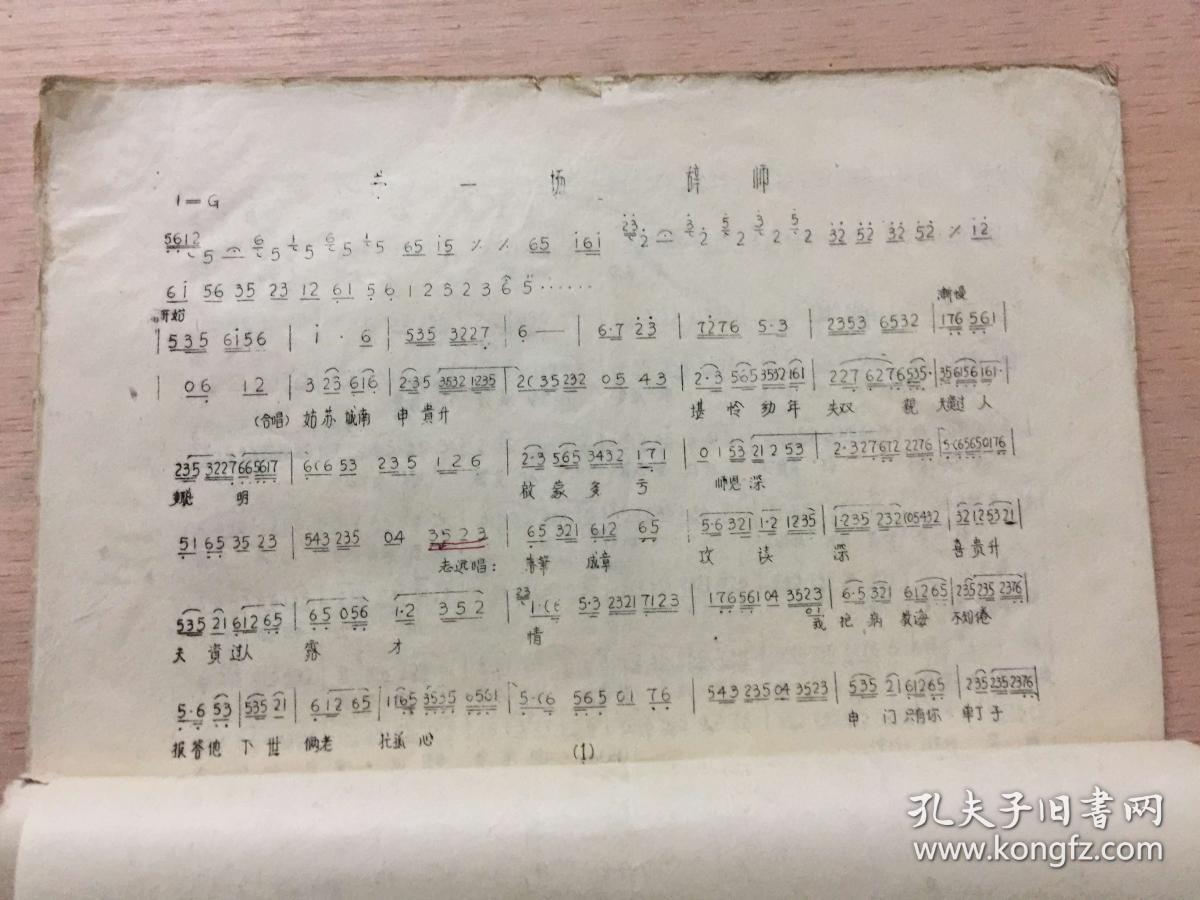 一 场 辞 师
1=G
5612 5 6 5 1 5 6 5 1 5 65 i5 65 i6i 23 2 3 2 5 2 3 2 5 2 32 52 32 52 12
6i 56 35 23 12 61 5 6 1 2 3 2 3 6 5 ……
开始 渐慢
| 535 6i56 | i · 6 | 535 3227 | 6 — | 6·7 23 | 7276 5·3 | 2353 6532 | 176 561 |
06 12 | 3 23 616 | 2·35 3532 1235 | 2( 35 232 05 43 | 2·3 565 3532 161 | 227 6276 535· | 356156 161·
(合唱) 姑苏城南 申贵升 堪怜幼年 失双 亲 过人
235 3227 665617 | 6(6 53 235 126 | 2·3 565 3432 171 | 01 53 21253 | 2·327672 2276 | 5·(65650176
明 启蒙多亏 师恩深
51 65 35 23 | 543 235 04 3523 | 65 321 612 65 | 5·6 321 1·2 1235 | 1·235 232(05432 | 3212 5321
志远唱: 成章 攻读深 喜贵升
535 21 612 65 | 65 056 1·2 352 | 23 1·(6 5·3 2321 7123 | 176 561 04 3523 01 | 6·5 321 612 65 | 235 235 2376 |
天资过人 露才 情 我抱病教诲 不知倦
5·6 53 | 535 21 | 612 65 | 1765 3535 6561 | 5·(6 565 01 76 | 543 235 04 3523 | 535 21 612 65 | 235 235 2376 |
报答他下世俩老 托孤心 申门只有你 单丁子
(1)
孔夫子旧书网
www.kongfz.com